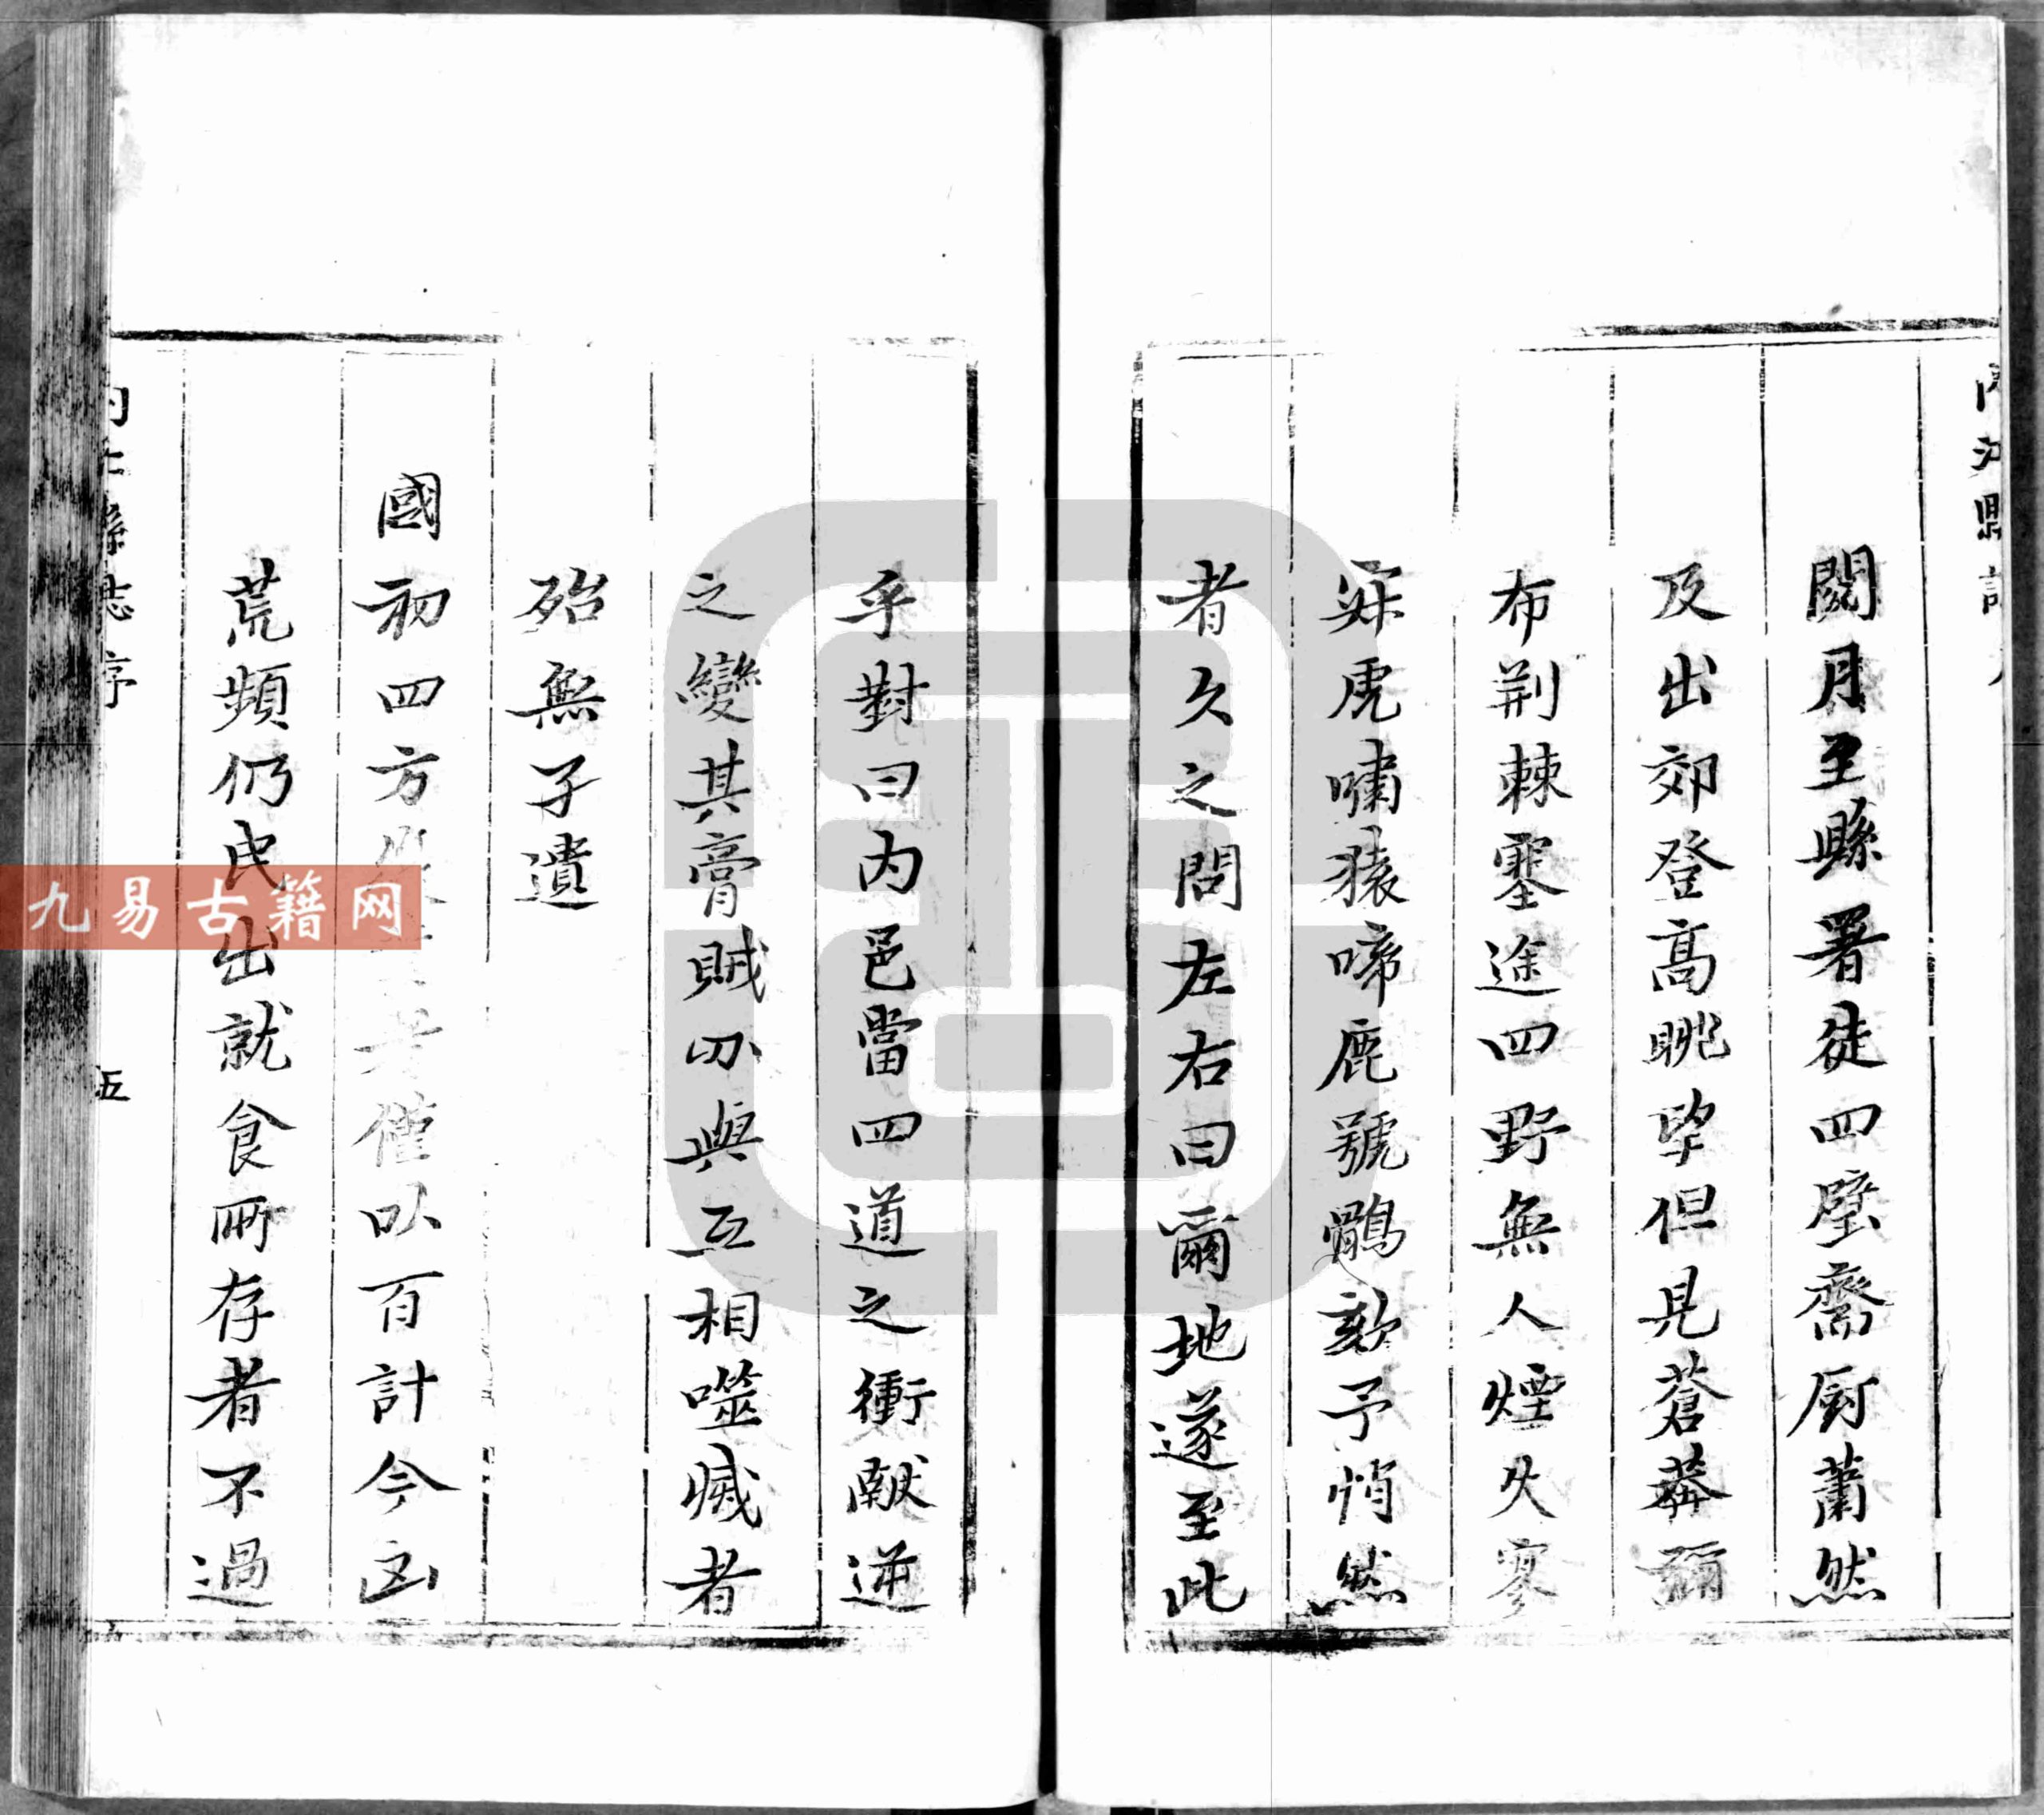 內江縣誌
閱月至縣署徒四壁齋厨蕭然
及出郊登高眺望但見蒼莽彌
布荆棘塞途四野無人煙久寥
寐虎嘯猿啼鹿號鶻欬予悄然
者久之問左右曰爾地遂至此
乎對曰內邑當四道之衝献逆
之變其膏賊刃與互相噬滅者
殆無孑遺
國初四方 僅以百計今凶
荒頻仍民出就食所存者不過
內江縣誌序
五
九易古籍网